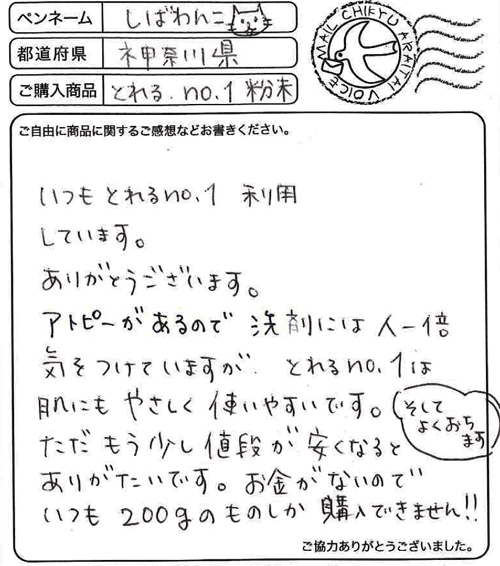 ペンネーム しばわんこ
都道府県 神奈川県
ご購入商品 とれる.no.1 粉末
VOICE MAIL CHIEYU ARAITAI
ご自由に商品に関するご感想などお書きください。
いつも とれるno.1 利用
しています。
ありがとうございます。
アトピーがあるので 洗剤には 人一倍
気をつけていますが、とれるno.1は
肌にも やさしく 使いやすいです。
そして
よくおち
ます
ただ もう少し 値段が 安くなると
ありがたいです。お金がないので
いつも 200gのものしか 購入できません!!
ご協力ありがとうございました。